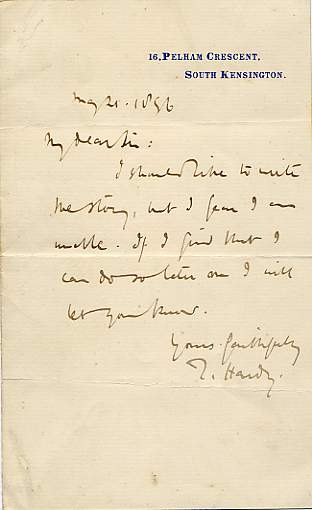 16, PELHAM CRESCENT,
SOUTH KENSINGTON.
May 21. 1896
My dear Sir:
I should like to write
the story, but I fear I am
unable. If I find that I
can do so later on I will
let you know.
Yours faithfully
T. Hardy.